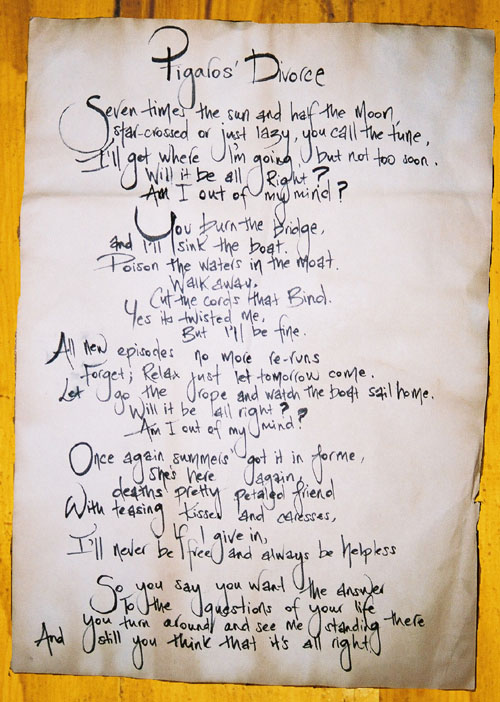 Pigalos' Divorce
Seven times the sun and half the Moon,
star-crossed or just lazy, you call the tune,
I'll get where I'm going, but not too soon.
Will it be all Right?
Am I out of my mind?
You burn the Bridge,
and I'll sink the boat.
Poison the waters in the moat.
Walk away.
Cut the cords that Bind.
Yes its twisted me,
But I'll be fine.
All new episodes no more re-runs
Forget; Relax just let tomorrow come.
Let go the rope and watch the boat sail home.
Will it be all right?
Am I out of my mind?
Once again summers' got it in for me,
She's here again,
deaths pretty petaled friend
With teasing kisses and caresses,
If I give in,
I'll never be free and always be helpless
So you say you want the answer
To the questions of your life
you turn around and see me standing there
And still you think that it's all right